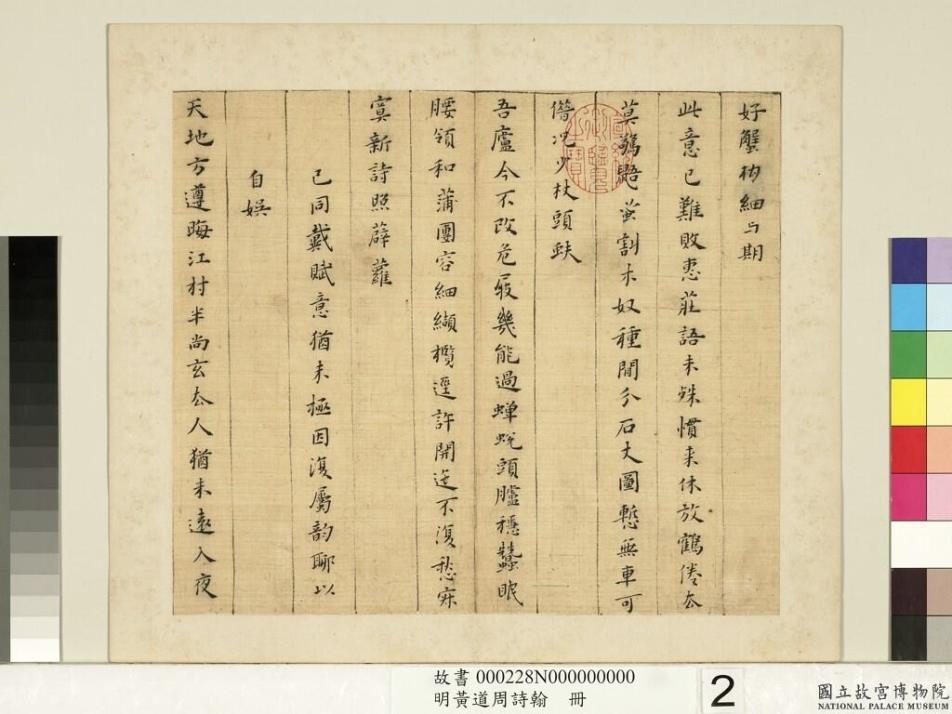 好蟹枘細与期
此意已難敗惠莊語未殊慣來休放鶴倦去
莫鷄蛩割木奴種閒分石丈圖慙無車可
僭况少杖頭趺
吾廬今不改危屐幾能過蟬蛻頭臚穩蠶眠
腰領和蒲團容細纈欖逕許開迻不復愁寐
寞新詩照薜蘿
已同戴賦意猶未極因復屬韵聊以
自娛
天地方遵晦江村半尚玄去人猶未遠入夜
故書 000228N000000000
明黃道周詩翰 冊
2
國立故宮博物院
NATIONAL PALACE MUSEUM